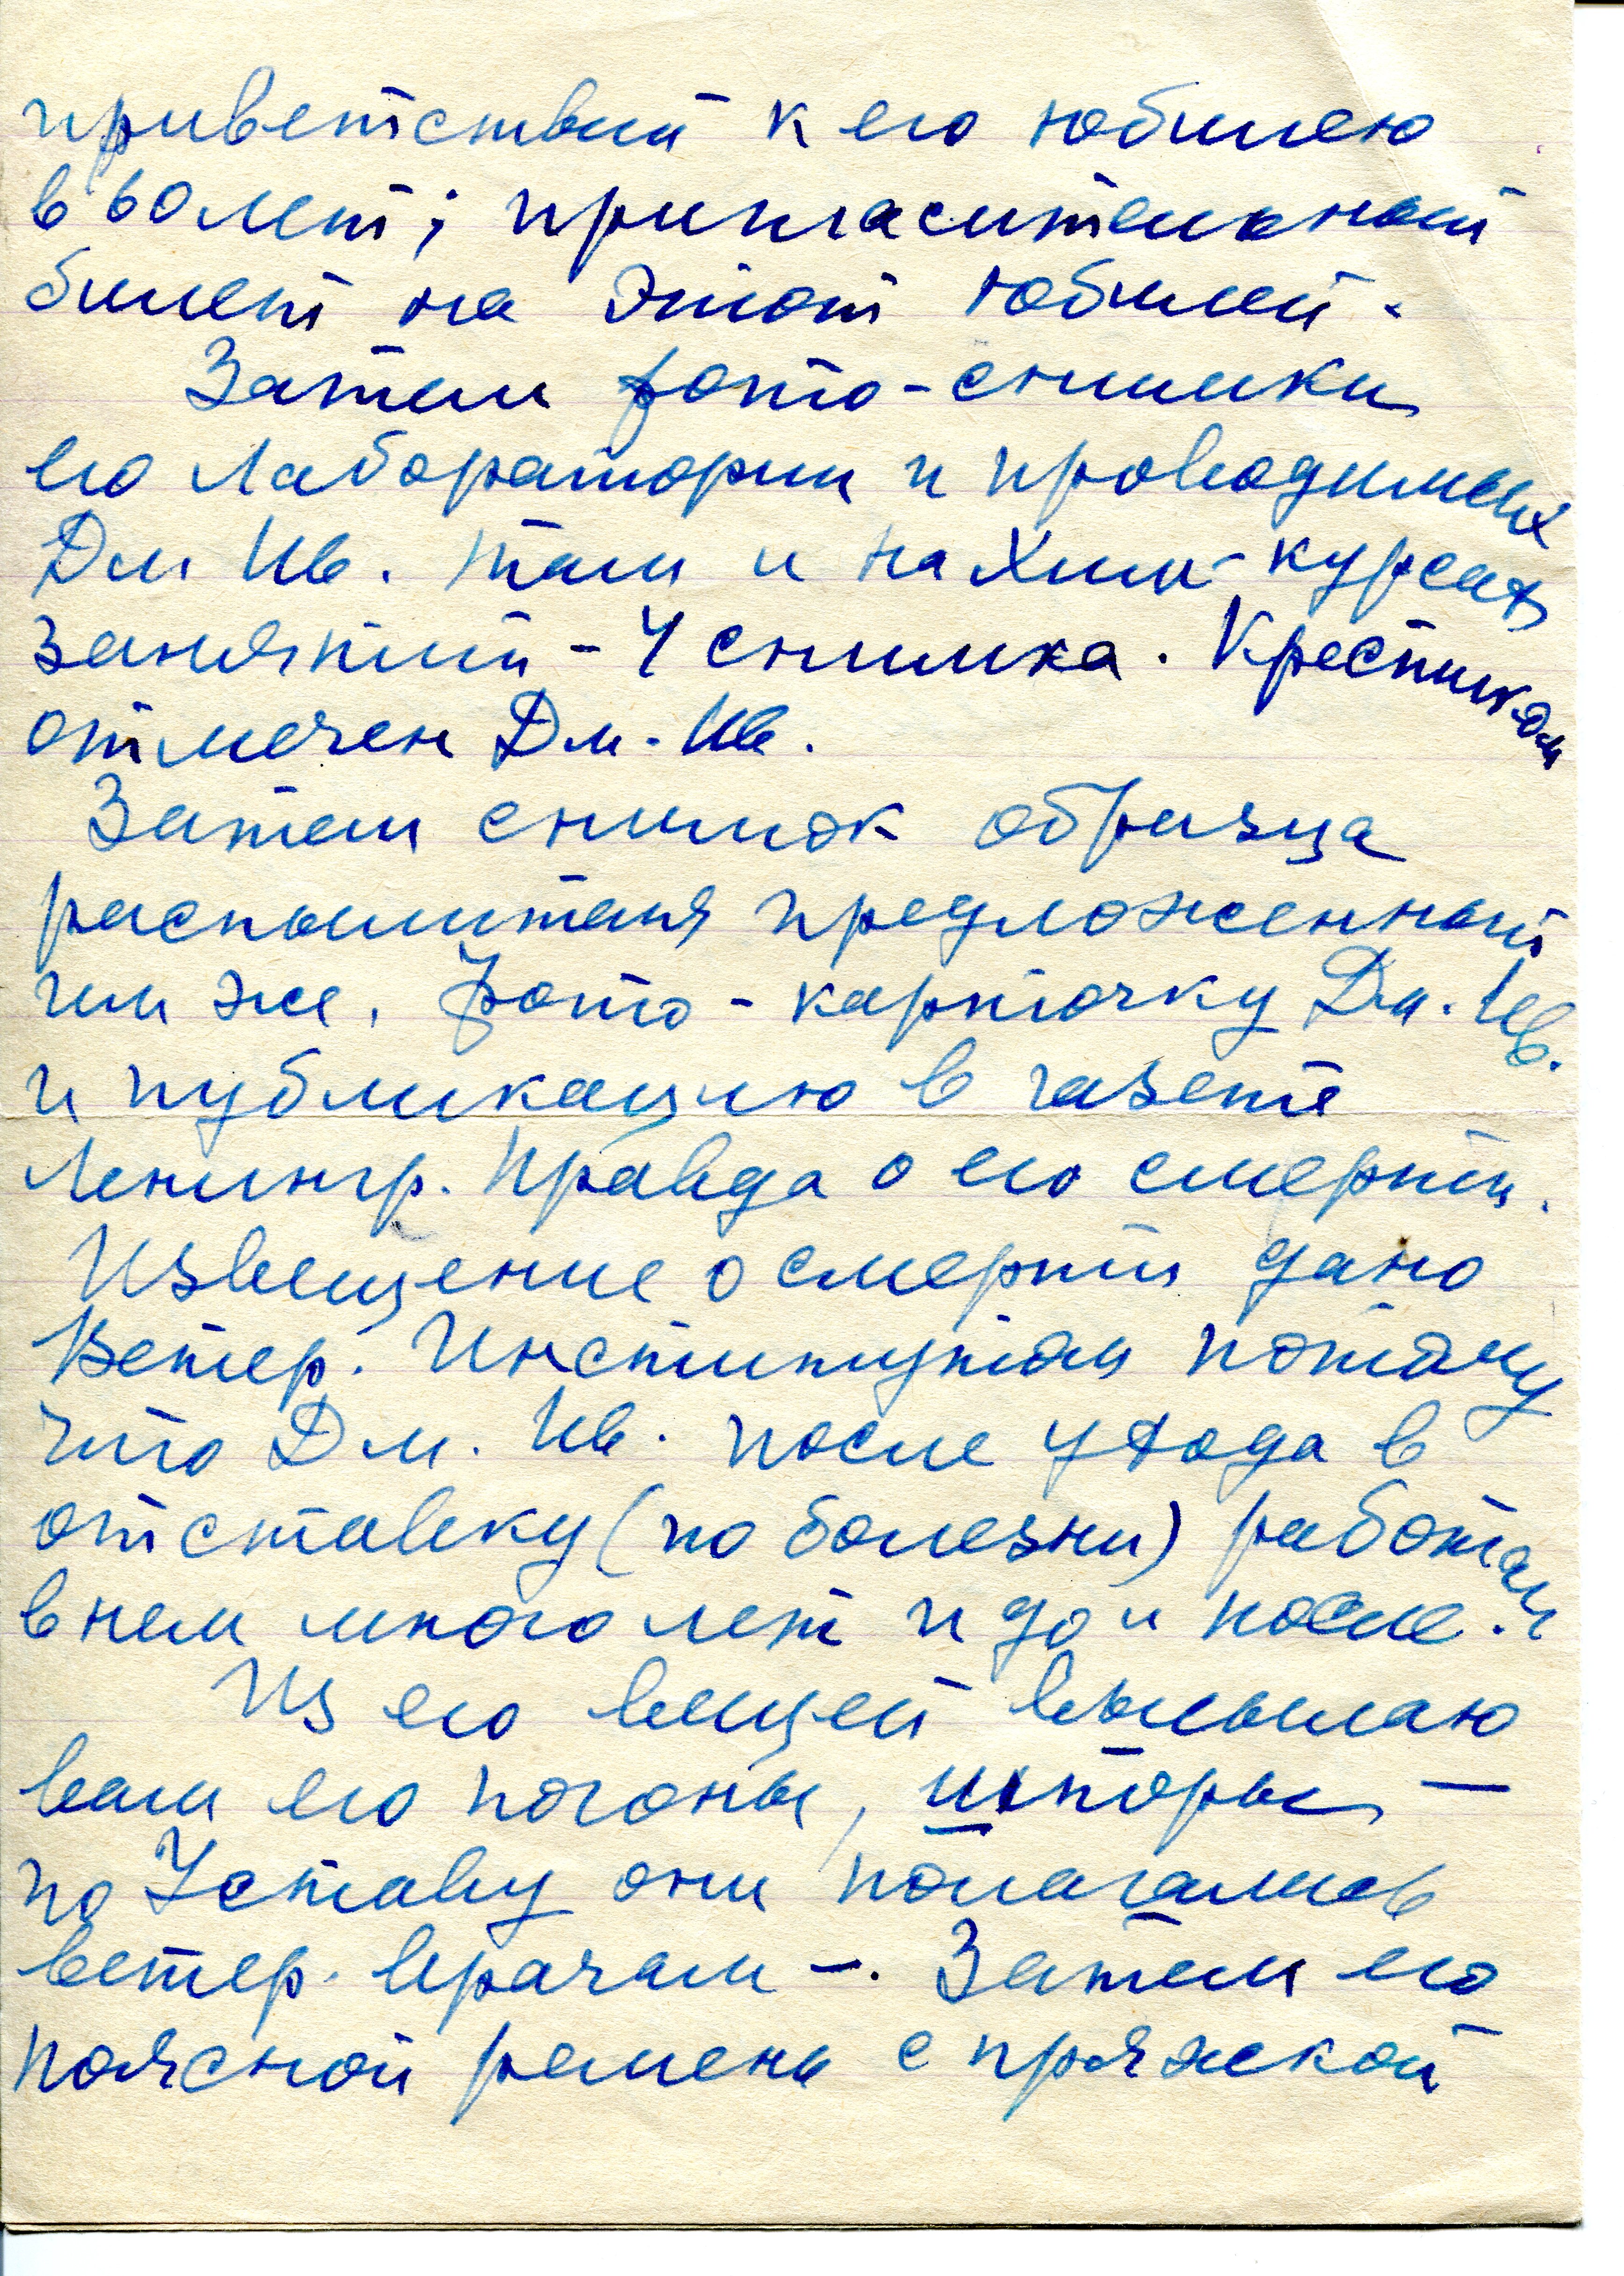 приветствий к его юбилею
в 60 лет; пригласительный
билет на этот юбилей.
Затем фото-снимки
его лаборатории и проводимых
Дм Ив. там и на Хим-курсах
занятий - 4 снимка. Крестиком
отмечен Дм. Ив.
Затем снимок образца
распылителя предложенный
им же. Фото-карточку Дм. Ив.
и публикацию в газете
Ленингр. Правда о его смерти.
Извещение о смерти дано
Ветер. Институтом потому
что Дм. Ив. после ухода в
отставку (по болезни) работал
в нем много лет и до и после.
Из его вещей высылаю
вам его погоны, шпоры —
по Уставу они полагались
ветер. врачам –. Затем его
поясной ремень с пряжкой